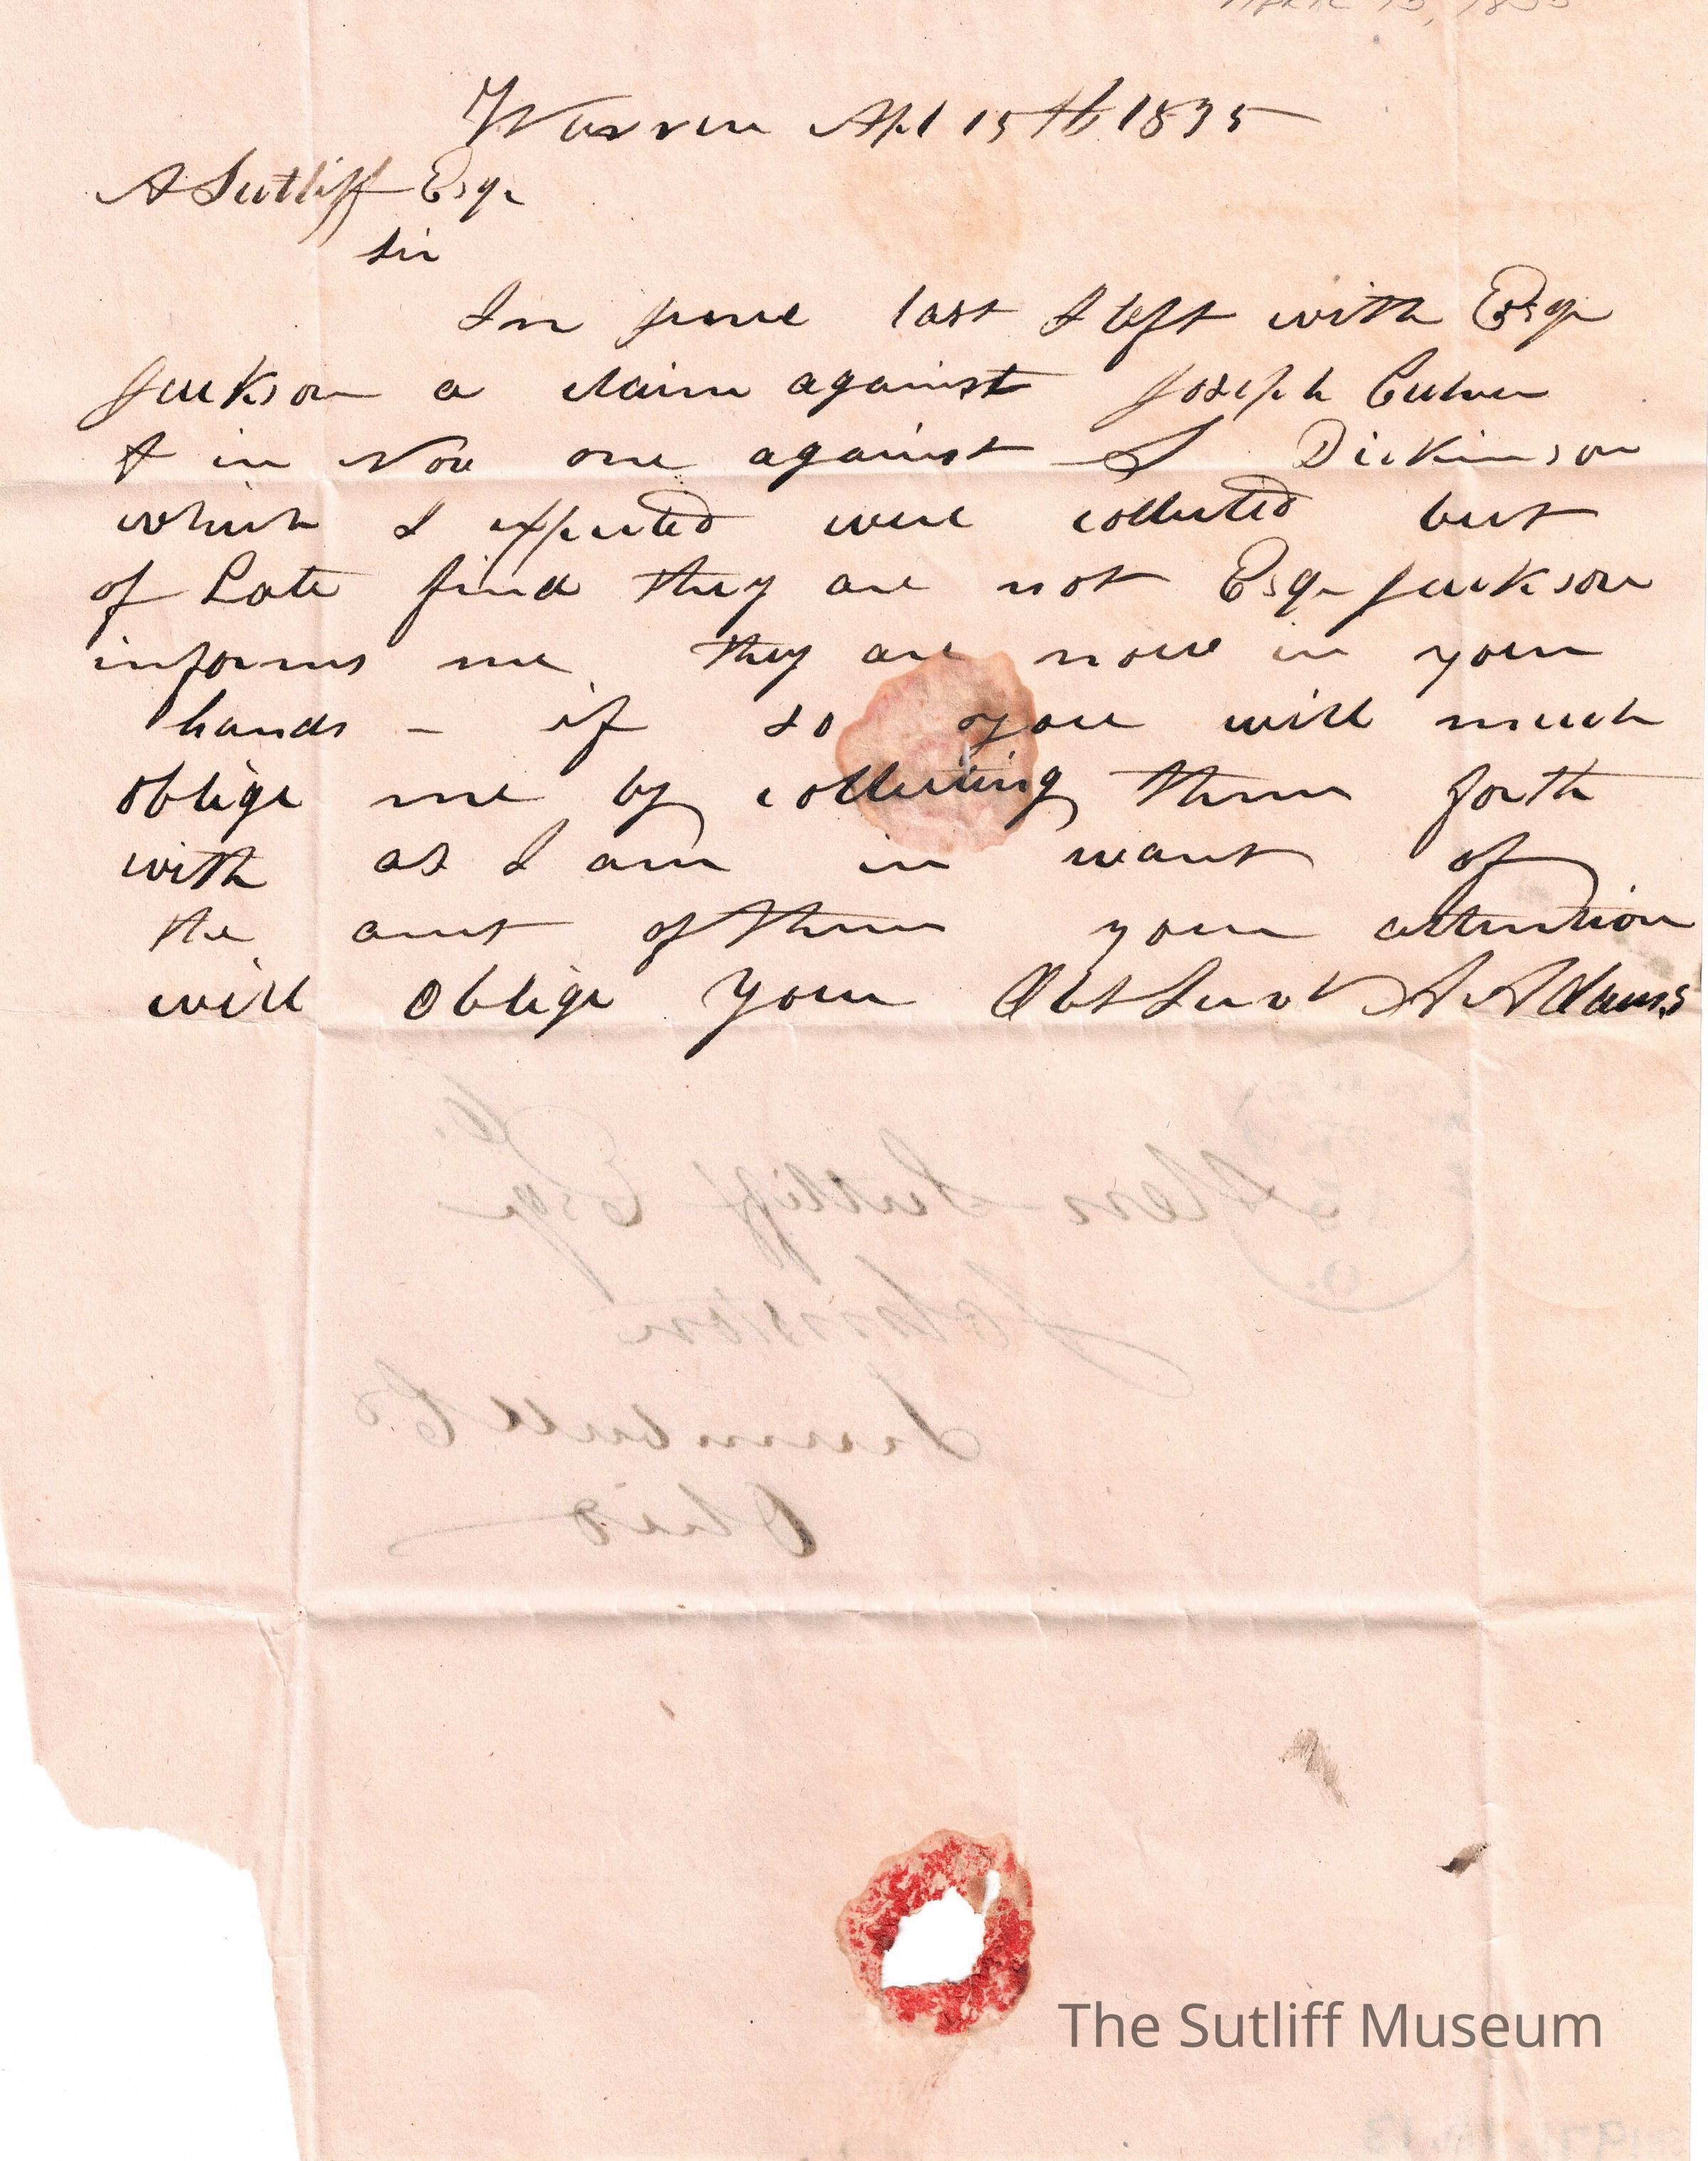 April 15, 1835
Warren Apl 15th 1835
A Sutliff Esqr
Sir
In june last I left with Esqr
Jackson a claim against Joseph Culver
& in Nov one against S Dickinson
which I expected were collected but
of Late find they are not Esqr Jackson
informs me they are now in your
hands – if so you will much
oblige me by collecting them forth
with as I am in want of
the amt of them your attention
will oblige your Obt Servt A Adams
Allen Sutliff Esqr
Johnston
Trumbull Co
Ohio
The Sutliff Museum